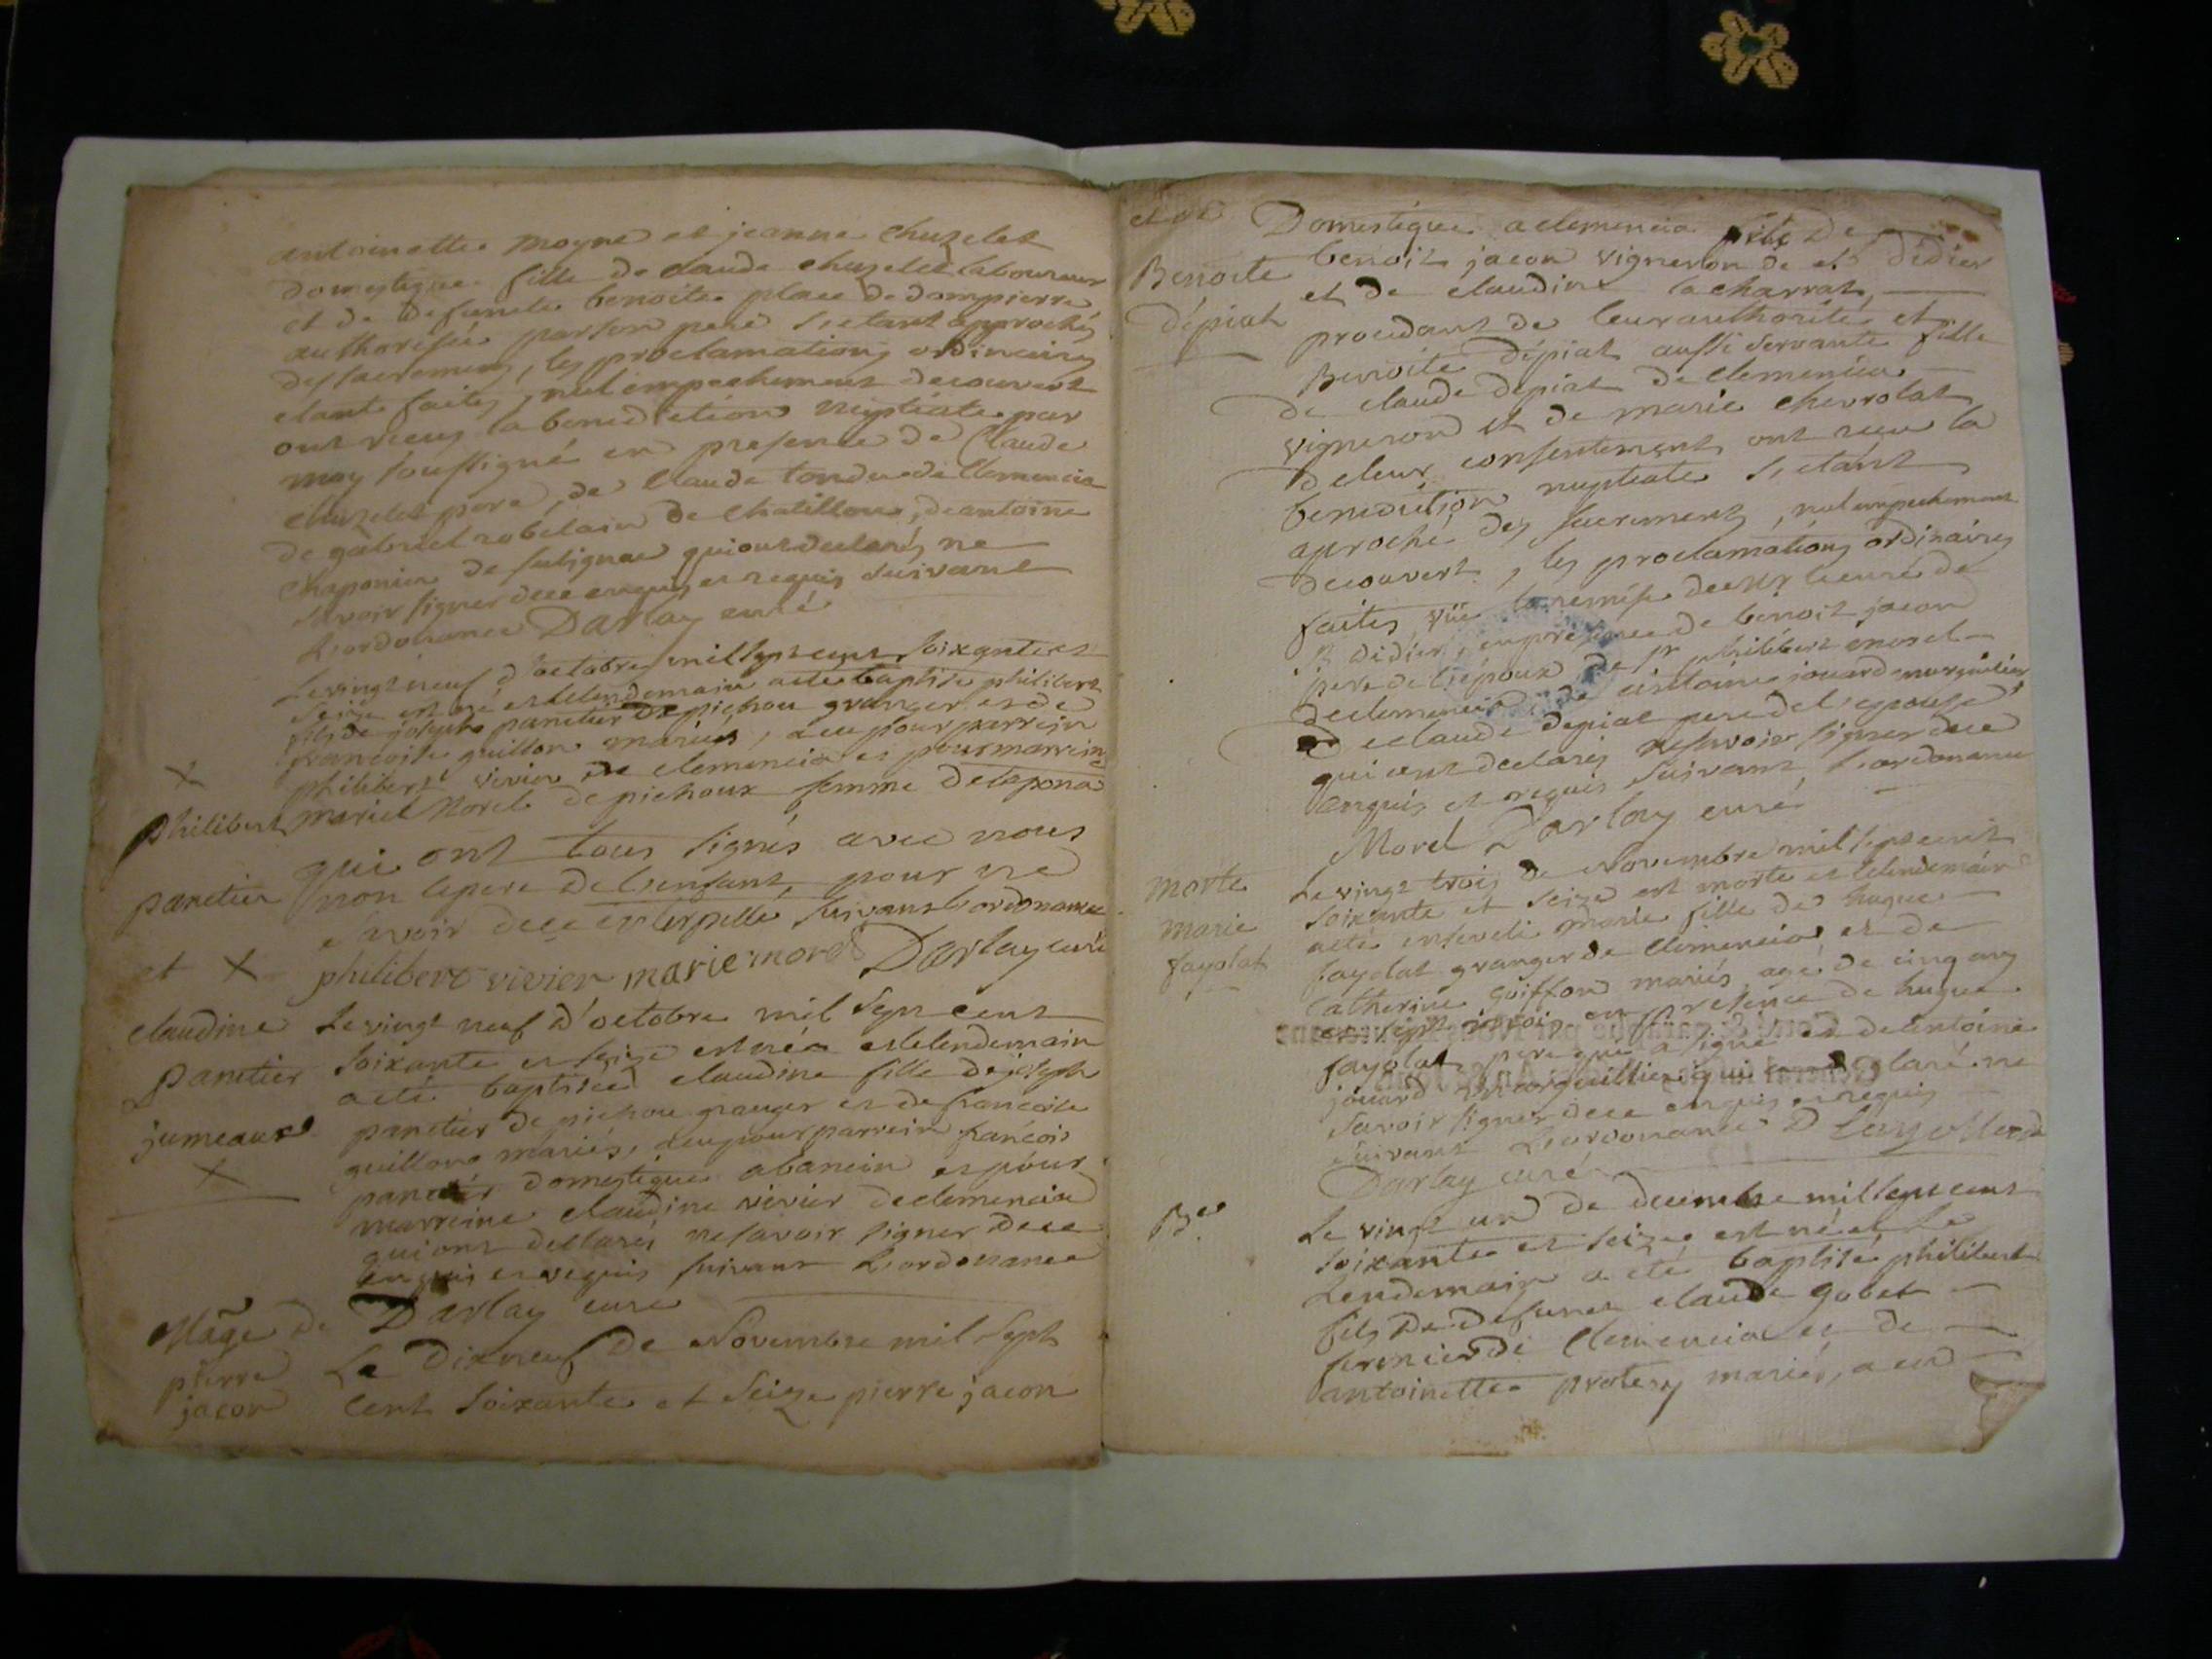 antoinette moyne et jeanne chuzelet
domestique fille de claude chuzelet laboureur
et de defuncte benoite place de dompierre
authorisée par son pere s'etant approchés
des sacremens, les proclamations ordinaires
etant faites, nul empechement decouvert
ont recus la benediction nuptiale par
moy soussigné en presence de Claude
chuzelet pere, de claude tondu de Clemencia
de gabriel robelain de chatillon, de antoine
chaponier de sulignac qui ont declarés ne
savoir signer de ce enquis et requis suivant
L'ordonance Darlay curé
Le vingt neuf d'octobre mil sept cent soixante et
seize est né et le lendemain a eté baptisé philibert
fils de joseph panetier de pichou granger et de
francoise guillon mariés, a eu pour parrein
X
philibert vivier de clemencia et pour marreine
philibert
mariel Morel de pichoux femme de lapona
qui ont tous signés avec nous
panetier
non le pere de l'enfant, pour ne
savoir de ce interpellé suivant l'ordonance
et X
philibert vivier marie morel Darlay curé
claudine
Le vingt neuf d'octobre mil sept cent
soixante et seize est née et le lendemain
panetier
a eté baptisée claudine fille de joseph
panetier de pichou granger et de francoise
jumeaux
guillon mariés, a eu pour parrein francois
X
panetier domestique a banein et pour
marreine claudine vivier de clemencia
qui ont declarés ne savoir signer de ce
enquis et requis suivant L'ordonance
Darlay curé
Mage de
pierre
jacon
Le Dixneuf de Novembre mil sept
cent soixante et seize pierre jacon
et de
Benoite
dépiat
Domestique a clemencia fils de
benoit jacon vigneron de st didier
et de claudine lacharrat,
procedant de leur authorité et
Benoite dépiat aussi servante fille
de claude depiat de clemencia
vigneron et de marie chevrolat
de leur consentement ont recu la
benediction nuptiale s'etant
aproché des sacrements, nul empechement
decouvert, les proclamations ordinaires
faites, vüe la remise de Mr le curé de
St didier, en presence de benoit jacon
pere de l'époux de Sr philibert morel
de clemencia de antoine jouard marguillier
de claude depiat pere de l'epouse
qui ont declarés ne savoir signer de ce
enquis et requis suivant L'ordonance
Morel Darlay curé
morte
marie
fayolat
Le vingt trois de Novembre mil sept cent
soixante et seize est morte et le lendemain
a eté enseveli marie fille de hugue
fayolat granger de clemencia et de
Catherine Goiffon mariés agé de cinq ans
en presence de hugue
fayolat pere qui a signé et de antoine
jouard marguillier qui a declaré ne
savoir signer de ce enquis et requis
suivant L'ordonance
Darlay curé
Bee
Le vingt un de decembre mil sept cent
soixante et seize est né et Le
Lendemain a eté baptisé philibert
fils De defunct claude gobet
fermier de Clemencia et de
antoinette protery mariés, a eu